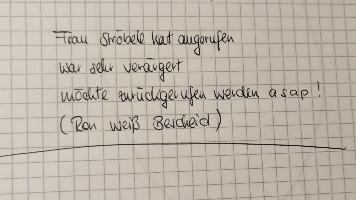 Frau Ströbele hat angerufen
war sehr verärgert
möchte zurückgerufen werden asap!
(Ron weiß Bescheid)